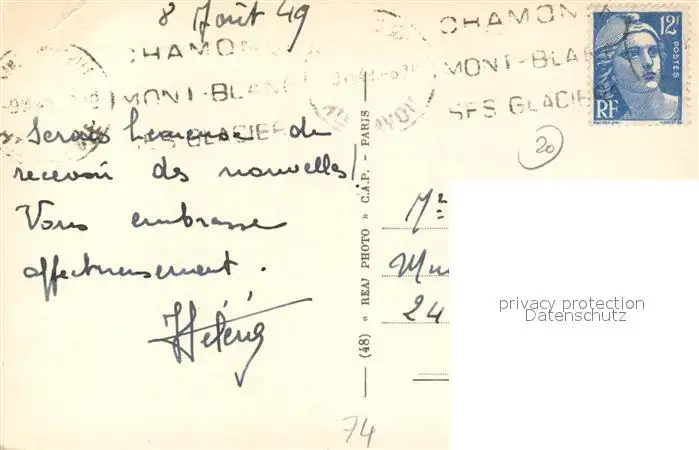 8 Août 49
CHAMONIX
MONT-BLANC
SES GLACIERS
CHAMON
MONT-BLA
SES GLACIE
12F
POSTES
RF
20
Serais heureuse de
recevoir des nouvelles!
Vous embrasse
affectueusement.
Hélène
(48) « REAJ PHOTO » C.A.P. - PARIS
Mr
24
74
privacy protection
Datenschutz